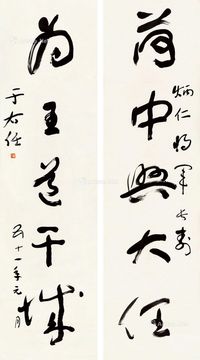 荷中興大任
炳仁将軍長壽
為王道干城
五十一年元月
于右任